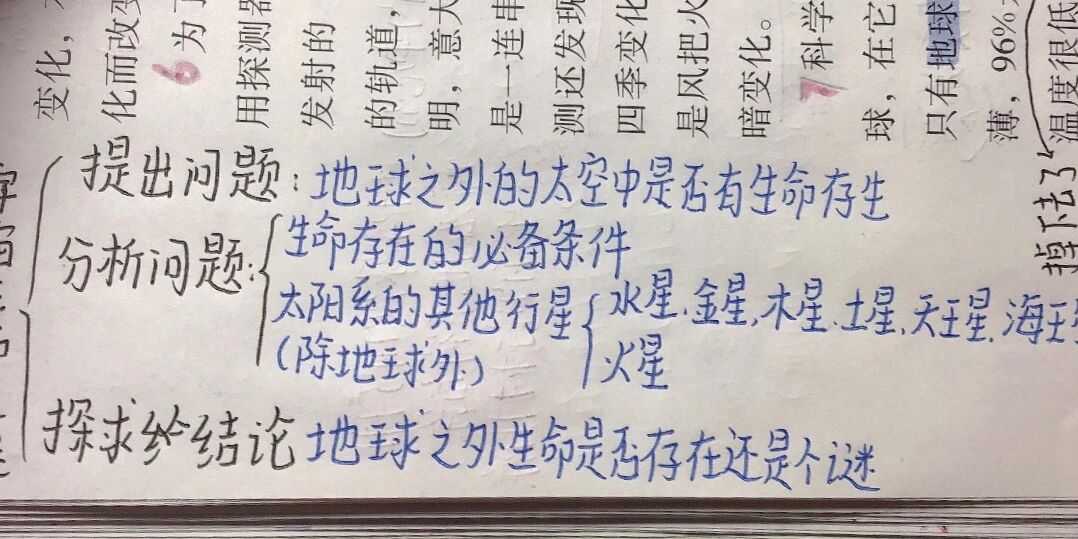 变化，
化而改变
6 为了
用探测器
发射的
的轨道，
明，意大
是一连串
测还发现
四季变化
是风把火
暗变化。
7 科学
球，在它
只有地球
薄，96%
温度很低
掉下去了
提出问题：地球之外的太空中是否有生命存生
分析问题：
生命存在的必备条件
太阳系的其他行星
(除地球外)
水星、金星、木星、土星、天王星、海王
火星
探求结论 地球之外生命是否存在还是个谜